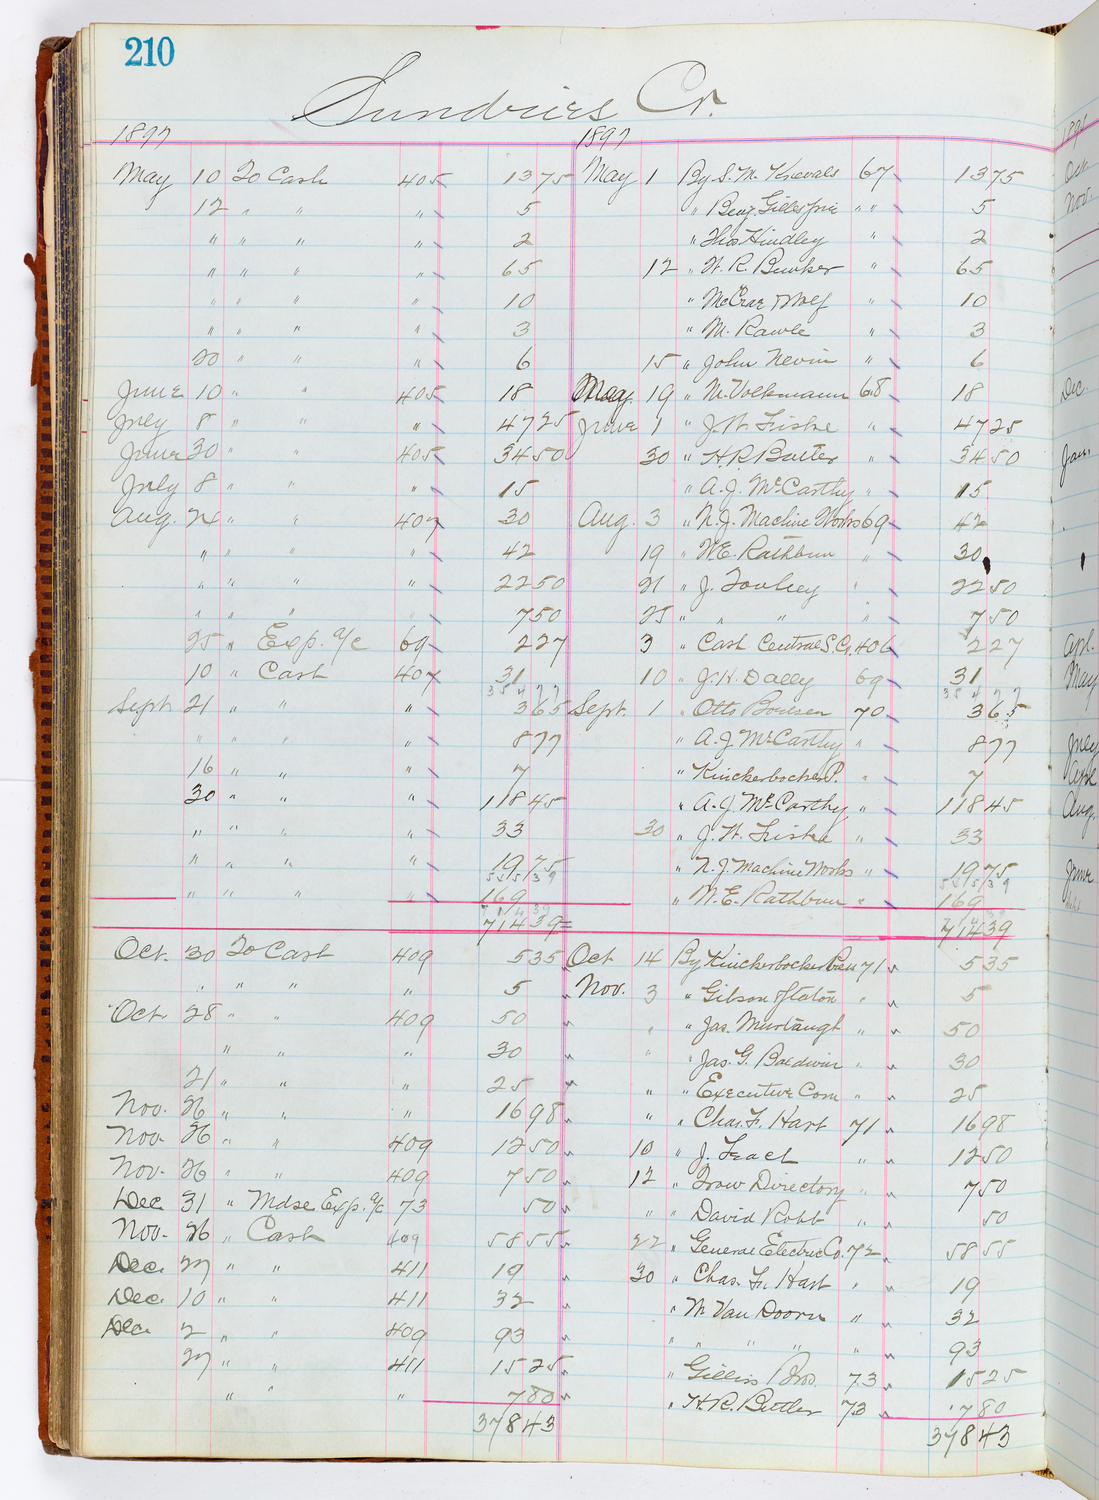 210
Sundries Cr.
1897 1897
May 10 To Cash 405 1375 May 1 By S. M. 67 1375
12 " " " 5 " Benj. Gillespie " " 5
" " " " 2 " Thos Hindley " 2
" " " " 65 12 " W. R. Bunker " 65
" " " " 10 " McCrae & Wolf " 10
" " " " 3 " M. Rawle " 3
20 " " " 6 15 " John Nevin " 6
June 10 " " 405 18 May 19 " M. Volkmann 68 18
July 8 " " " 4725 June 1 " J. W. Friske " 4725
June 30 " " 405 3450 30 " H. R. Butler " 3450
July 8 " " " 15 " A. J. McCarthy " 15
Aug. 24 " " 407 30 Aug. 3 " N. J. Machine Works 69 42
" " " " 42 19 " W E. Rathbun " 30
" " " " 2250 21 " J. " 2250
" " " " 750 25 " " " " 750
25 " Exp. a/c 69 227 3 " Cash Central S. Co. 406 227
10 " Cash 407 31 10 " J. H. Dalley 69 31
35477 35477
Sept 21 " " " 365 Sept. 1 " Otto Boulsen 70 365
" " " " 877 " A. J. McCarthy " 877
16 " " " 7 " Knickerbocker P. " 7
30 " " " 11845 " A. J. McCarthy " 11845
" " " " 33 30 " J. W. Friske " 33
" " " " 1975 " N. J. Machine Works " 1975
54539 54539
" " " " 169 " W. E. Rathbun " 169
71439 71439
Oct. 30 To Cash 409 535 Oct 14 By Knickerbocker 71 535
" " " " 5 Nov. 3 " Gibson & Staton " 5
Oct 28 " " 409 50 " " Jas. Murtaugh " 50
" " " 30 " " Jas. G. Baldwin " 30
21 " " " 25 " " Executive Com " 25
Nov. 26 " " " 1698 " " Chas. F. Hart 71 1698
Nov. 26 " " 409 1250 10 " J. Leach " 1250
Nov. 26 " " 409 750 12 " Trow Directory " 750
Dec 31 " Mdse Exp. a/c 73 50 " " David Robb " 50
Nov. 26 " Cash 409 5855 22 " General Electric Co. 72 5855
Dec. 27 " " 411 19 30 " Chas. F. Hart " 19
Dec. 10 " " 411 32 " M Van Doorn " 32
Dec. 2 " " 409 93 " " " " 93
27 " " 411 1525 " Gillis Bros. 73 1525
" " " 780 " H. R. Butler 73 780
37843 37843
Oct
Nov.
Dec.
Jan.
Apl.
May
July
Aug.
June